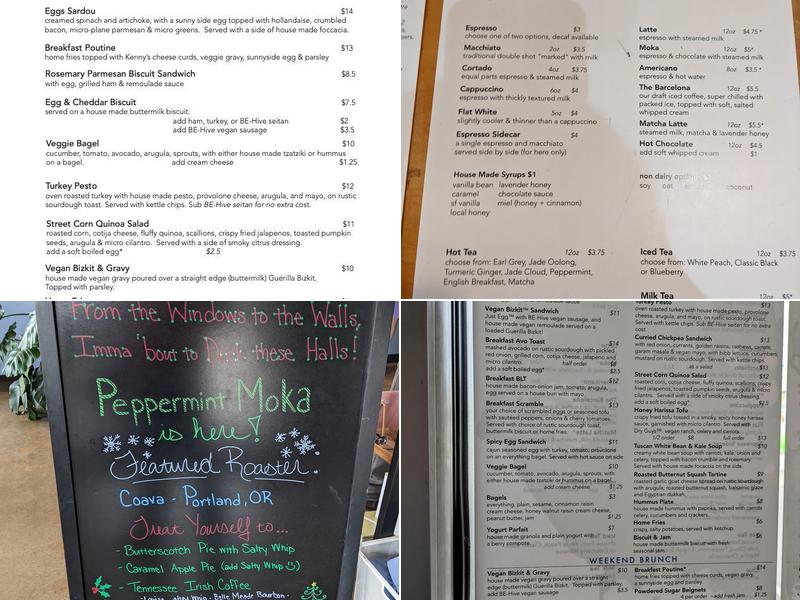 Eggs Sardou $14
creamed spinach and artichoke, with a sunny side egg topped with hollandaise, crumbled
bacon, micro-plane parmesan & micro greens. Served with a side of house made foccacia.
Breakfast Poutine $13
home fries topped with Kenny's cheese curds, veggie gravy, sunnyside egg & parsley
Rosemary Parmesan Biscuit Sandwich $8.5
with egg, grilled ham & remoulade sauce
Egg & Cheddar Biscuit $7.5
served on a house made buttermilk biscuit.
add ham, turkey, or BE-Hive seitan $2
add BE-Hive vegan sausage $3.5
Veggie Bagel $10
cucumber, tomato, avocado, arugula, sprouts, with either house made tzatziki or hummus
on a bagel. add cream cheese $1.25
Turkey Pesto $12
oven roasted turkey with house made pesto, provolone cheese, arugula, and mayo, on rustic
sourdough toast. Served with kettle chips. Sub BE-Hive seitan for no extra cost.
Street Corn Quinoa Salad $11
roasted corn, cotija cheese, fluffy quinoa, scallions, crispy fried jalapenos, toasted pumpkin
seeds, arugula & micro cilantro. Served with a side of smoky citrus dressing.
add a soft boiled egg* $2.5
Vegan Bizkit & Gravy $10
house made vegan gravy poured over a straight edge (buttermilk) Guerilla Bizkit.
Topped with parsley.
Espresso $3
choose one of two options, decaf available
Macchiato 2oz $3.5
traditional double shot "marked" with milk
Cortado 4oz $3.75
equal parts espresso & steamed milk
Cappuccino 6oz $4
espresso with thickly textured milk
Flat White 5oz $4
slightly cooler & thinner than a cappuccino
Espresso Sidecar $4
a single espresso and macchiato
served side by side (for here only)
House Made Syrups $1
vanilla bean lavender honey
caramel chocolate sauce
sf vanilla miel (honey + cinnamon)
local honey
Hot Tea 12oz $3.75
choose from: Earl Grey, Jade Oolong,
Turmeric Ginger, Jade Cloud, Peppermint,
English Breakfast, Matcha
Latte 12oz $4.75 *
espresso with steamed milk
Moka 12oz $5*
espresso & chocolate with steamed milk
Americano 8oz $3.5 *
espresso & hot water
The Barcelona 12oz $5.5
our draft iced coffee, super chilled with
packed ice, topped with soft, salted
whipped cream
Matcha Latte 12oz $5.5*
steamed milk, matcha & lavender honey
Hot Chocolate 12oz $4.5
add soft whipped cream $1
non dairy options
soy oat coconut
Iced Tea 12oz $3.75
choose from: White Peach, Classic Black
or Blueberry
Milk Tea 12oz $5*
From the Windows to the Walls,
Imma 'bout to Deck these Halls!
Peppermint Moka
is here!
Featured Roaster:
Coava - Portland, OR
Treat Yourself to...
- Butterscotch Pie with Salty Whip
- Caramel Apple Pie (add Salty Whip :))
- Tennessee Irish Coffee
Belle Meade Bourbon
Vegan Bizkit™ Sandwich $11
Just Egg™ with BE-Hive vegan sausage, and
house made vegan remoulade served on a
loaded Guerilla Bizkit!
Breakfast Avo Toast $14
mashed avocado on rustic sourdough with pickled
red onion, grilled corn, cotija cheese, jalapeno and
micro cilantro. half order $8
add a soft boiled egg* $2.5
Breakfast BLT $12
house made bacon-onion jam, tomato, arugula,
egg served on a house bun with mayo.
Breakfast Scramble $13
your choice of scrambled eggs or seasoned tofu
with sauteed peppers, onions & cherry tomatoes.
Served with choice of rustic sourdough toast,
buttermilk biscuit or home fries.
Spicy Egg Sandwich $11
cajun seasoned egg with turkey, tomato, provolone
on an everything bagel. Served with hot sauce on side
Veggie Bagel $10
cucumber, tomato, avocado, arugula, sprouts, with
either house made tzatziki or hummus on a bagel.
add cream cheese $1.25
Bagels $3
everything, plain, sesame, cinnamon raisin
cream cheese, honey walnut raisin cream cheese,
peanut butter, jam $1.25
Yogurt Parfait $7
house made granola and plain yogurt with
a berry compote.
Turkey Pesto $13
oven roasted turkey with house made pesto, provolone
cheese, arugula, and mayo, on rustic sourdough toast.
Served with kettle chips. Sub BE-Hive seitan for no extra
cost.
Curried Chickpea Sandwich $13
with red onion, currants, golden raisins, cashews, carrots,
garam masala & vegan mayo, with bibb lettuce, cucumbers,
mustard on rustic sourdough. Served with kettle chips.
as a salad $13
Street Corn Quinoa Salad $12
roasted corn, cotija cheese, fluffy quinoa, scallions, crispy
fried jalapenos, toasted pumpkin seeds, arugula & micro
cilantro. Served with a side of smoky citrus dressing.
add a soft boiled egg* $2.5
Honey Harissa Tofu
crispy fried tofu tossed in a smoky, spicy honey harissa
sauce, garnished with micro cilantro. Served with
Dry Guys™ vegan ranch, celery and carrots.
1/2 order $8 full order $13
Tuscan White Bean & Kale Soup
creamy white bean soup with carrots, kale, onion and
celery, topped with bacon crumble and rosemary.
Served with house made focaccia on the side.
Roasted Butternut Squash Tartine $9
roasted garlic goat cheese spread on rustic sourdough
with arugula, roasted butternut squash, balsamic glaze
and Egyptian dukkah.
Hummus Plate $8
house made hummus with parsley, served with carrots
celery, cucumbers and crackers.
Home Fries $6
crispy, salty potatoes, served with ketchup.
Biscuit & Jam $6
house made buttermilk biscuit with fresh
seasonal jam.
WEEKEND BRUNCH
Vegan Bizkit & Gravy $10
house made vegan gravy poured over a
straight edge Guerilla Bizkit. Topped with parsley.
add BE-Hive vegan sausage $3.5
Breakfast Poutine* $14
home fries topped with cheese curds, vegan gravy,
a sunnyside egg and parsley.
Powdered Sugar Beignets $8
4 per order add fresh jam $1.25